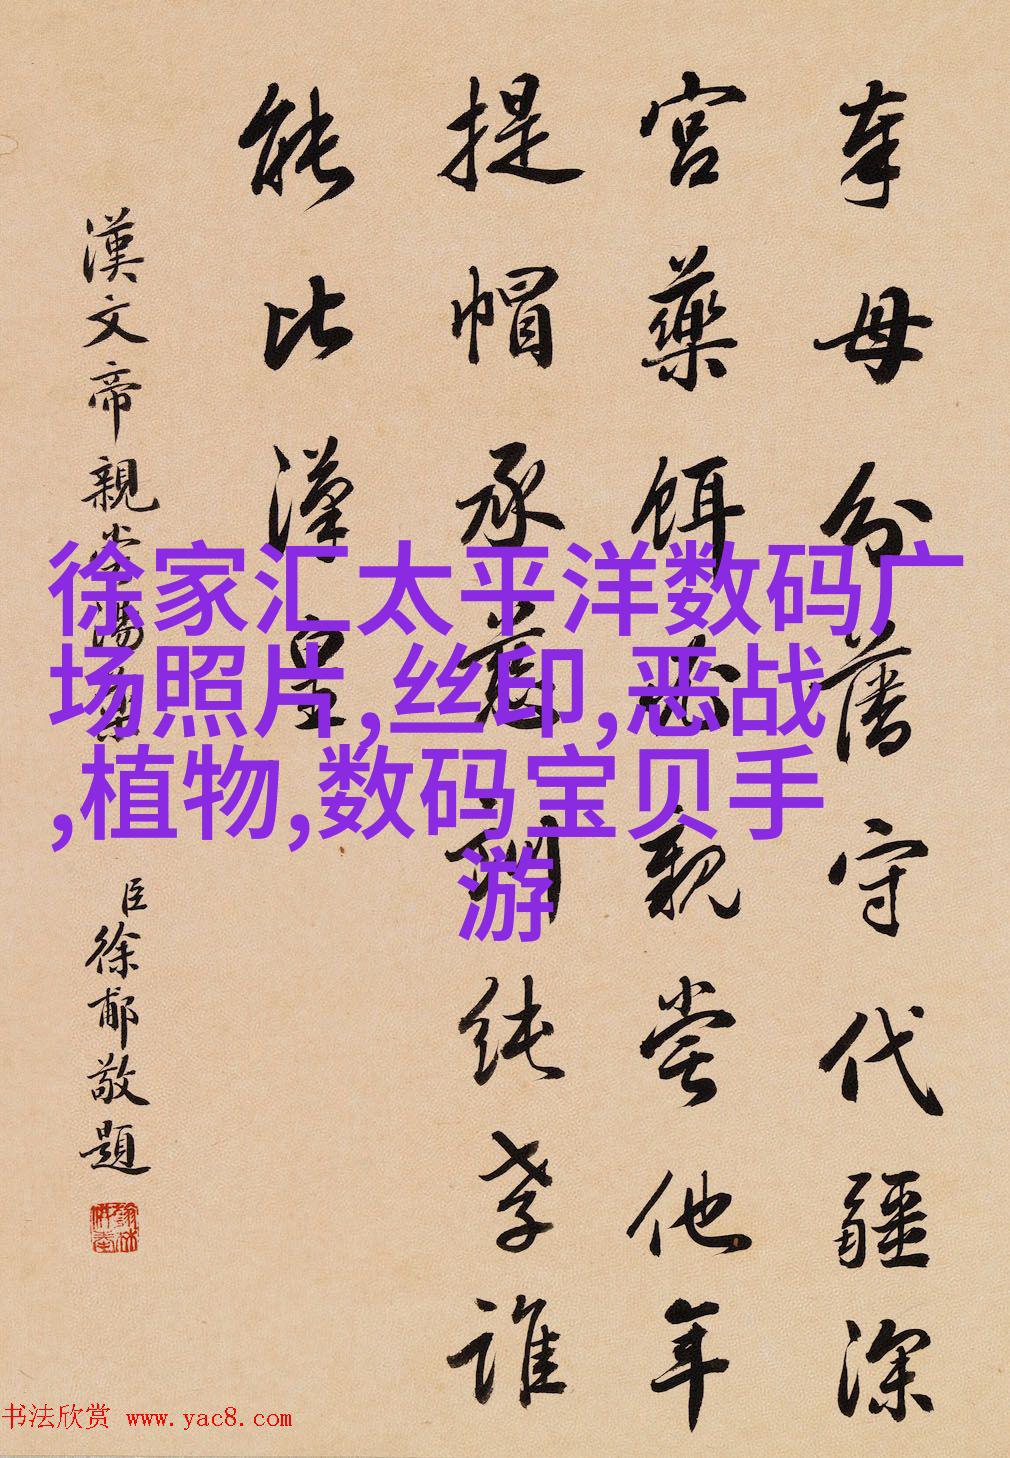 奉母分藩守代疆深
宮藥餌必親嘗他年
提帽承慈訓純孝誰
能比漢皇
漢文帝親嘗湯藥
臣徐郙敬題
徐家汇太平洋数码广
场照片,丝印,恶战
,植物,数码宝贝手
游
书法欣赏 www.yac8.com